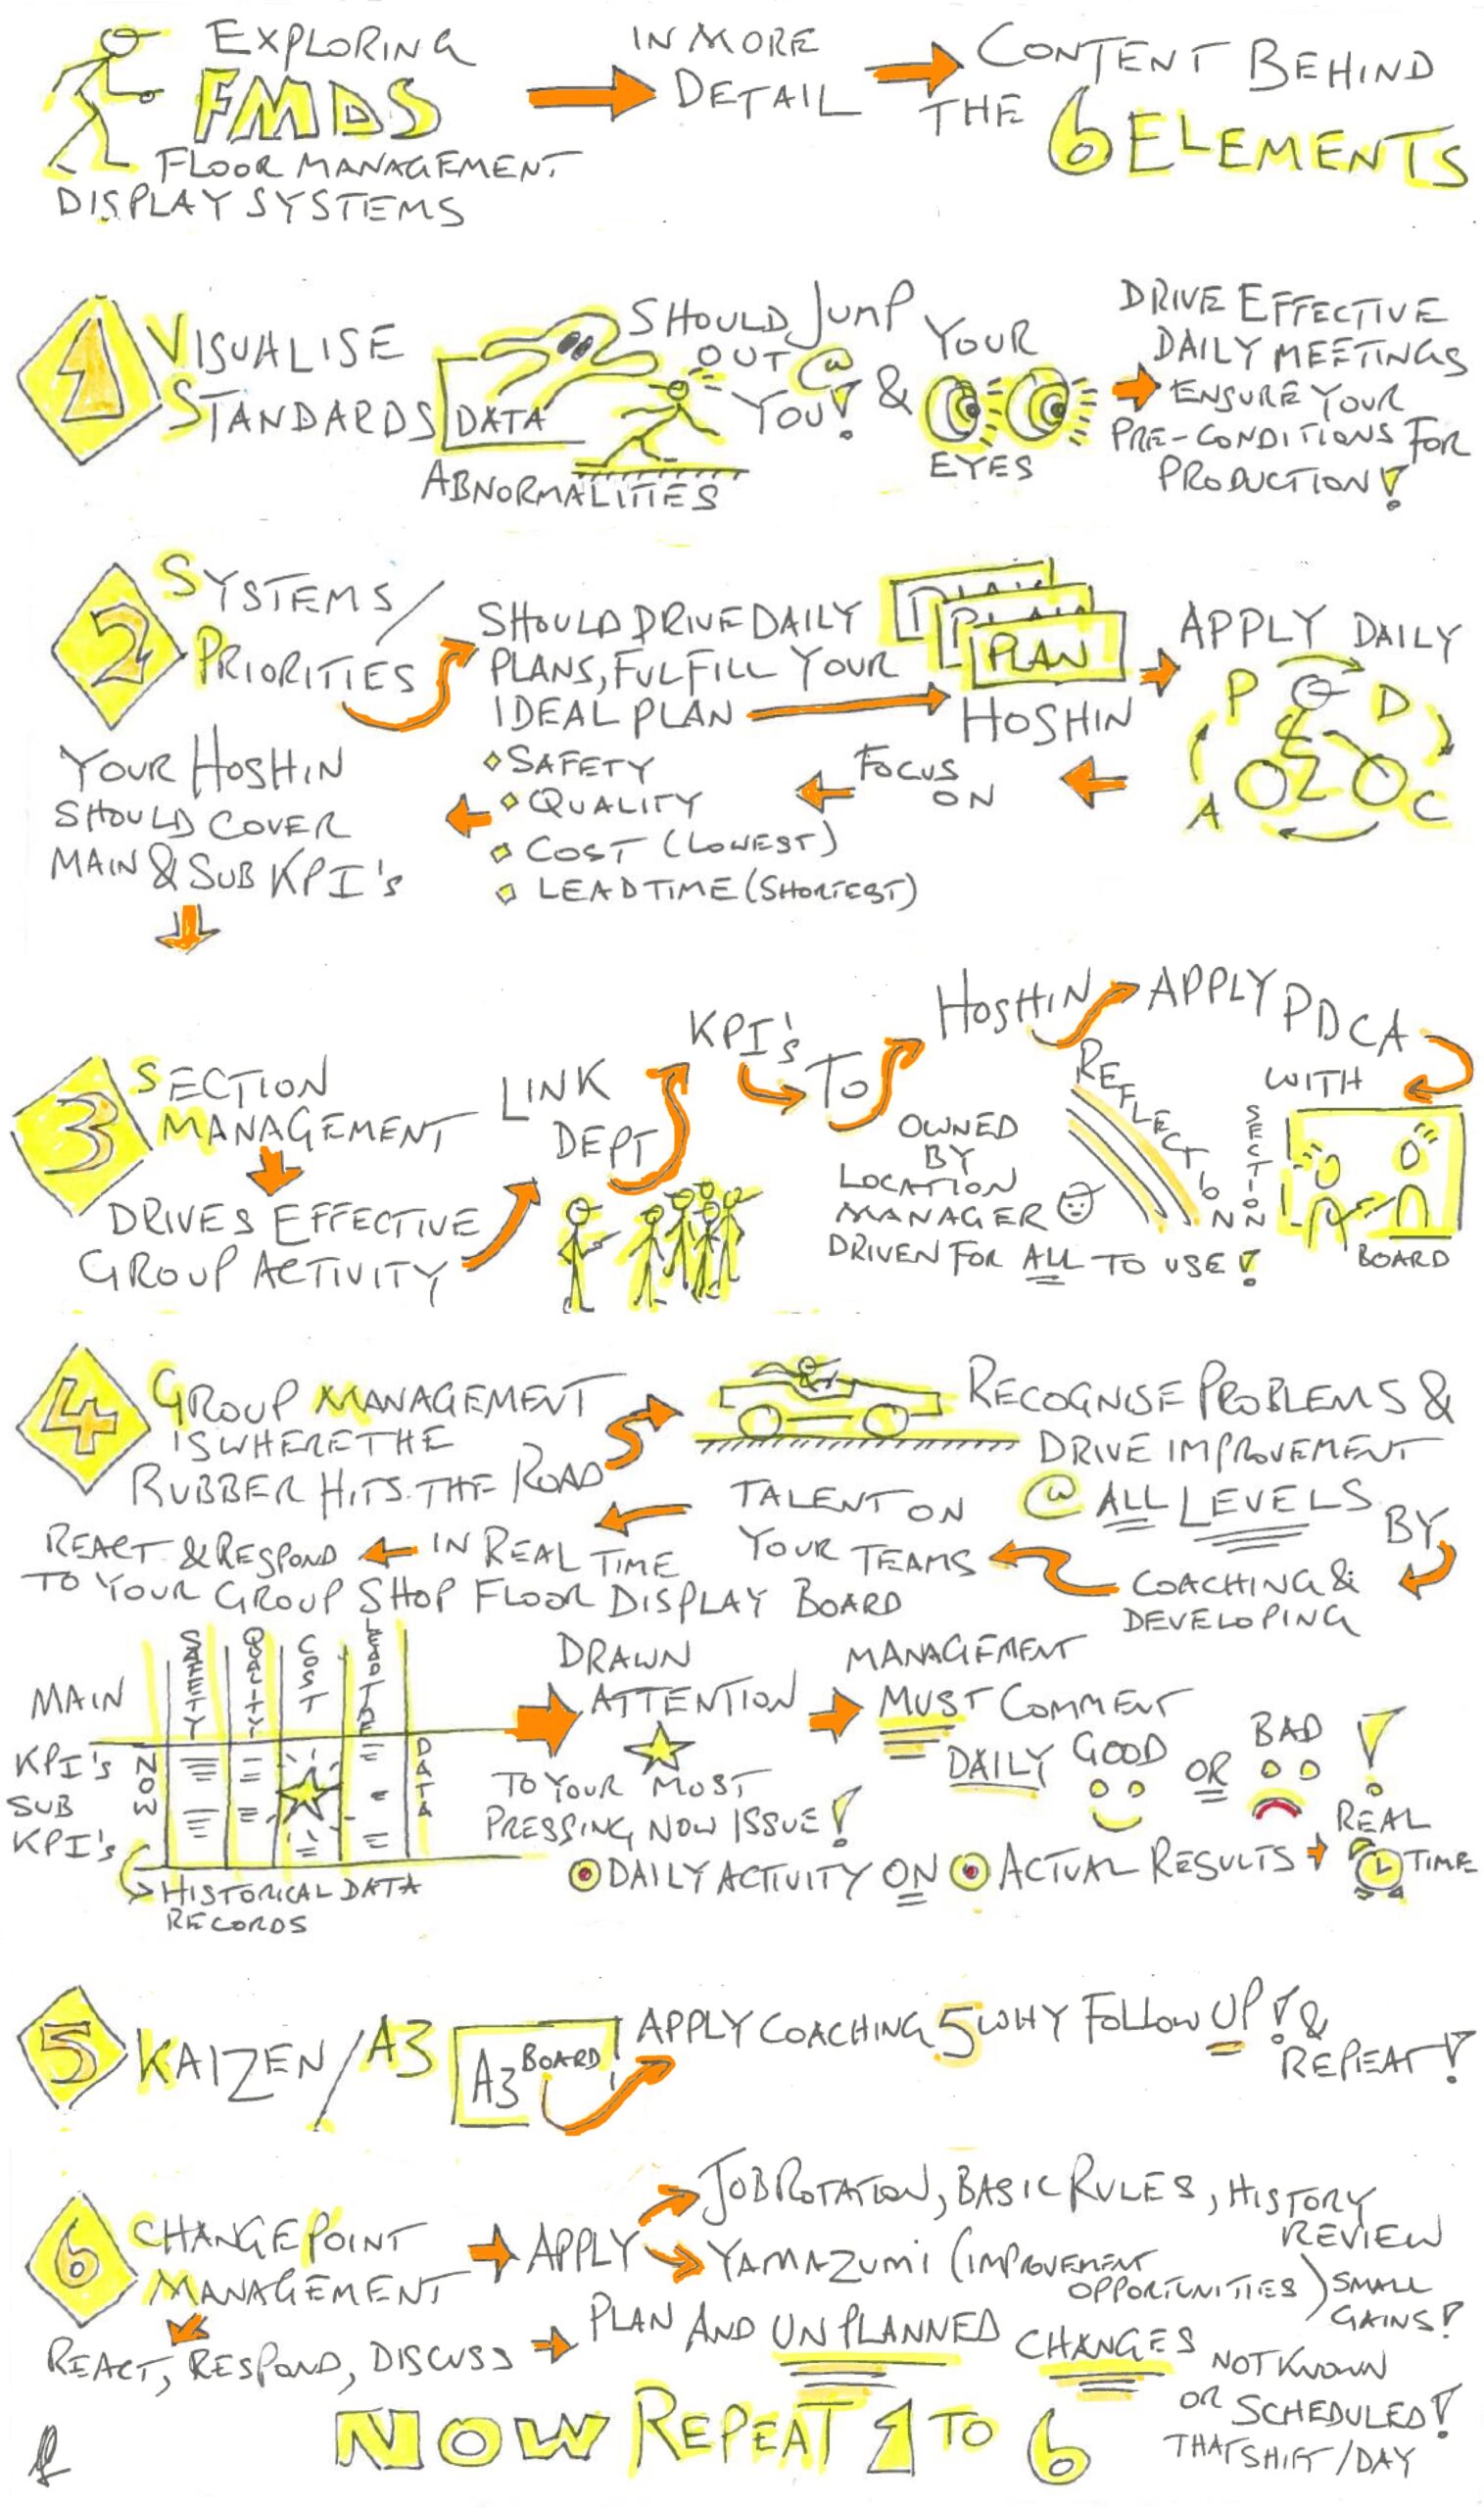 EXPLORING
FMDS
FLOOR MANAGEMENT
DISPLAY SYSTEMS
IN MORE
DETAIL
CONTENT BEHIND
THE 6 ELEMENTS
1 VISUALISE
STANDARDS
DATA
ABNORMALITIES
SHOULD JUMP
OUT @
YOU! &
YOUR
EYES
DRIVE EFFECTIVE
DAILY MEETINGS
ENSURE YOUR
PRE-CONDITIONS FOR
PRODUCTION!
2 SYSTEMS/
PRIORITIES
SHOULD DRIVE DAILY
PLANS, FULFILL YOUR
IDEAL PLAN
PLAN
PLAN
PLAN
HOSHIN
APPLY DAILY
P D
A C
FOCUS
ON
SAFETY
QUALITY
COST (LOWEST)
LEADTIME (SHORTEST)
YOUR HOSHIN
SHOULD COVER
MAIN & SUB KPI's
3 SECTION
MANAGEMENT
DRIVES EFFECTIVE
GROUP ACTIVITY
LINK
DEPT
KPI's
TO
HOSHIN
APPLY PDCA
WITH
SECTION
BOARD
REFLECTION
OWNED
BY
LOCATION
MANAGER
DRIVEN FOR ALL TO USE!
4 GROUP MANAGEMENT
IS WHERE THE
RUBBER HITS THE ROAD
RECOGNISE PROBLEMS &
DRIVE IMPROVEMENT
@ ALL LEVELS
BY
COACHING &
DEVELOPING
TALENT ON
YOUR TEAMS
IN REAL TIME
REACT & RESPOND
TO YOUR GROUP SHOP FLOOR DISPLAY BOARD
MAIN
KPI's
SUB
KPI's
NOW
SAFETY
QUALITY
COST
LEADTIME
DATA
HISTORICAL DATA
RECORDS
DRAWN
ATTENTION
TO YOUR MOST
PRESSING NOW ISSUE!
MANAGEMENT
MUST COMMENT
DAILY GOOD OR BAD !
DAILY ACTIVITY ON ACTUAL RESULTS
REAL
TIME
5 KAIZEN/A3
A3 BOARD
APPLY COACHING 5 WHY FOLLOW UP! &
REPEAT!
6 CHANGE POINT
MANAGEMENT
APPLY
JOB ROTATION, BASIC RULES, HISTORY
REVIEW
YAMAZUMI (IMPROVEMENT
OPPORTUNITIES) SMALL
GAINS!
REACT, RESPOND, DISCUSS
PLAN AND UNPLANNED CHANGES
NOT KNOWN
OR SCHEDULED!
THAT SHIFT/DAY
NOW REPEAT 1 TO 6